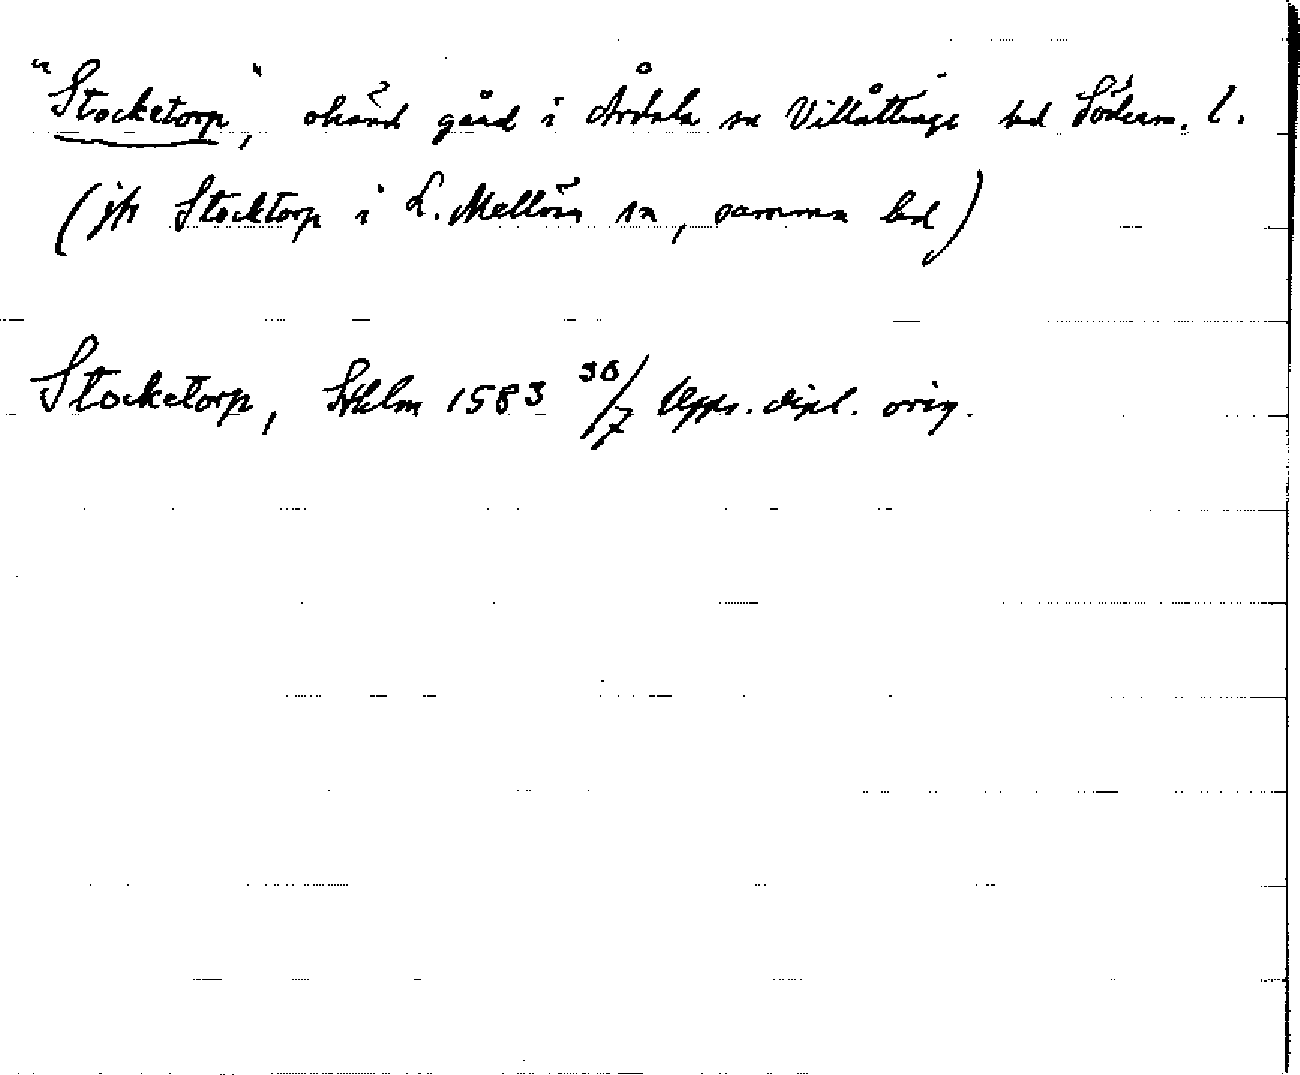 "Stocketorp", okänd gård i Årdala sn Villåttinge hd Söderm. l.
(jfr Stocktorp i L. Mellösa sn, samma hd)
Stocketorp, Sthlm 1583 30/7 Upps. dipl. orig.